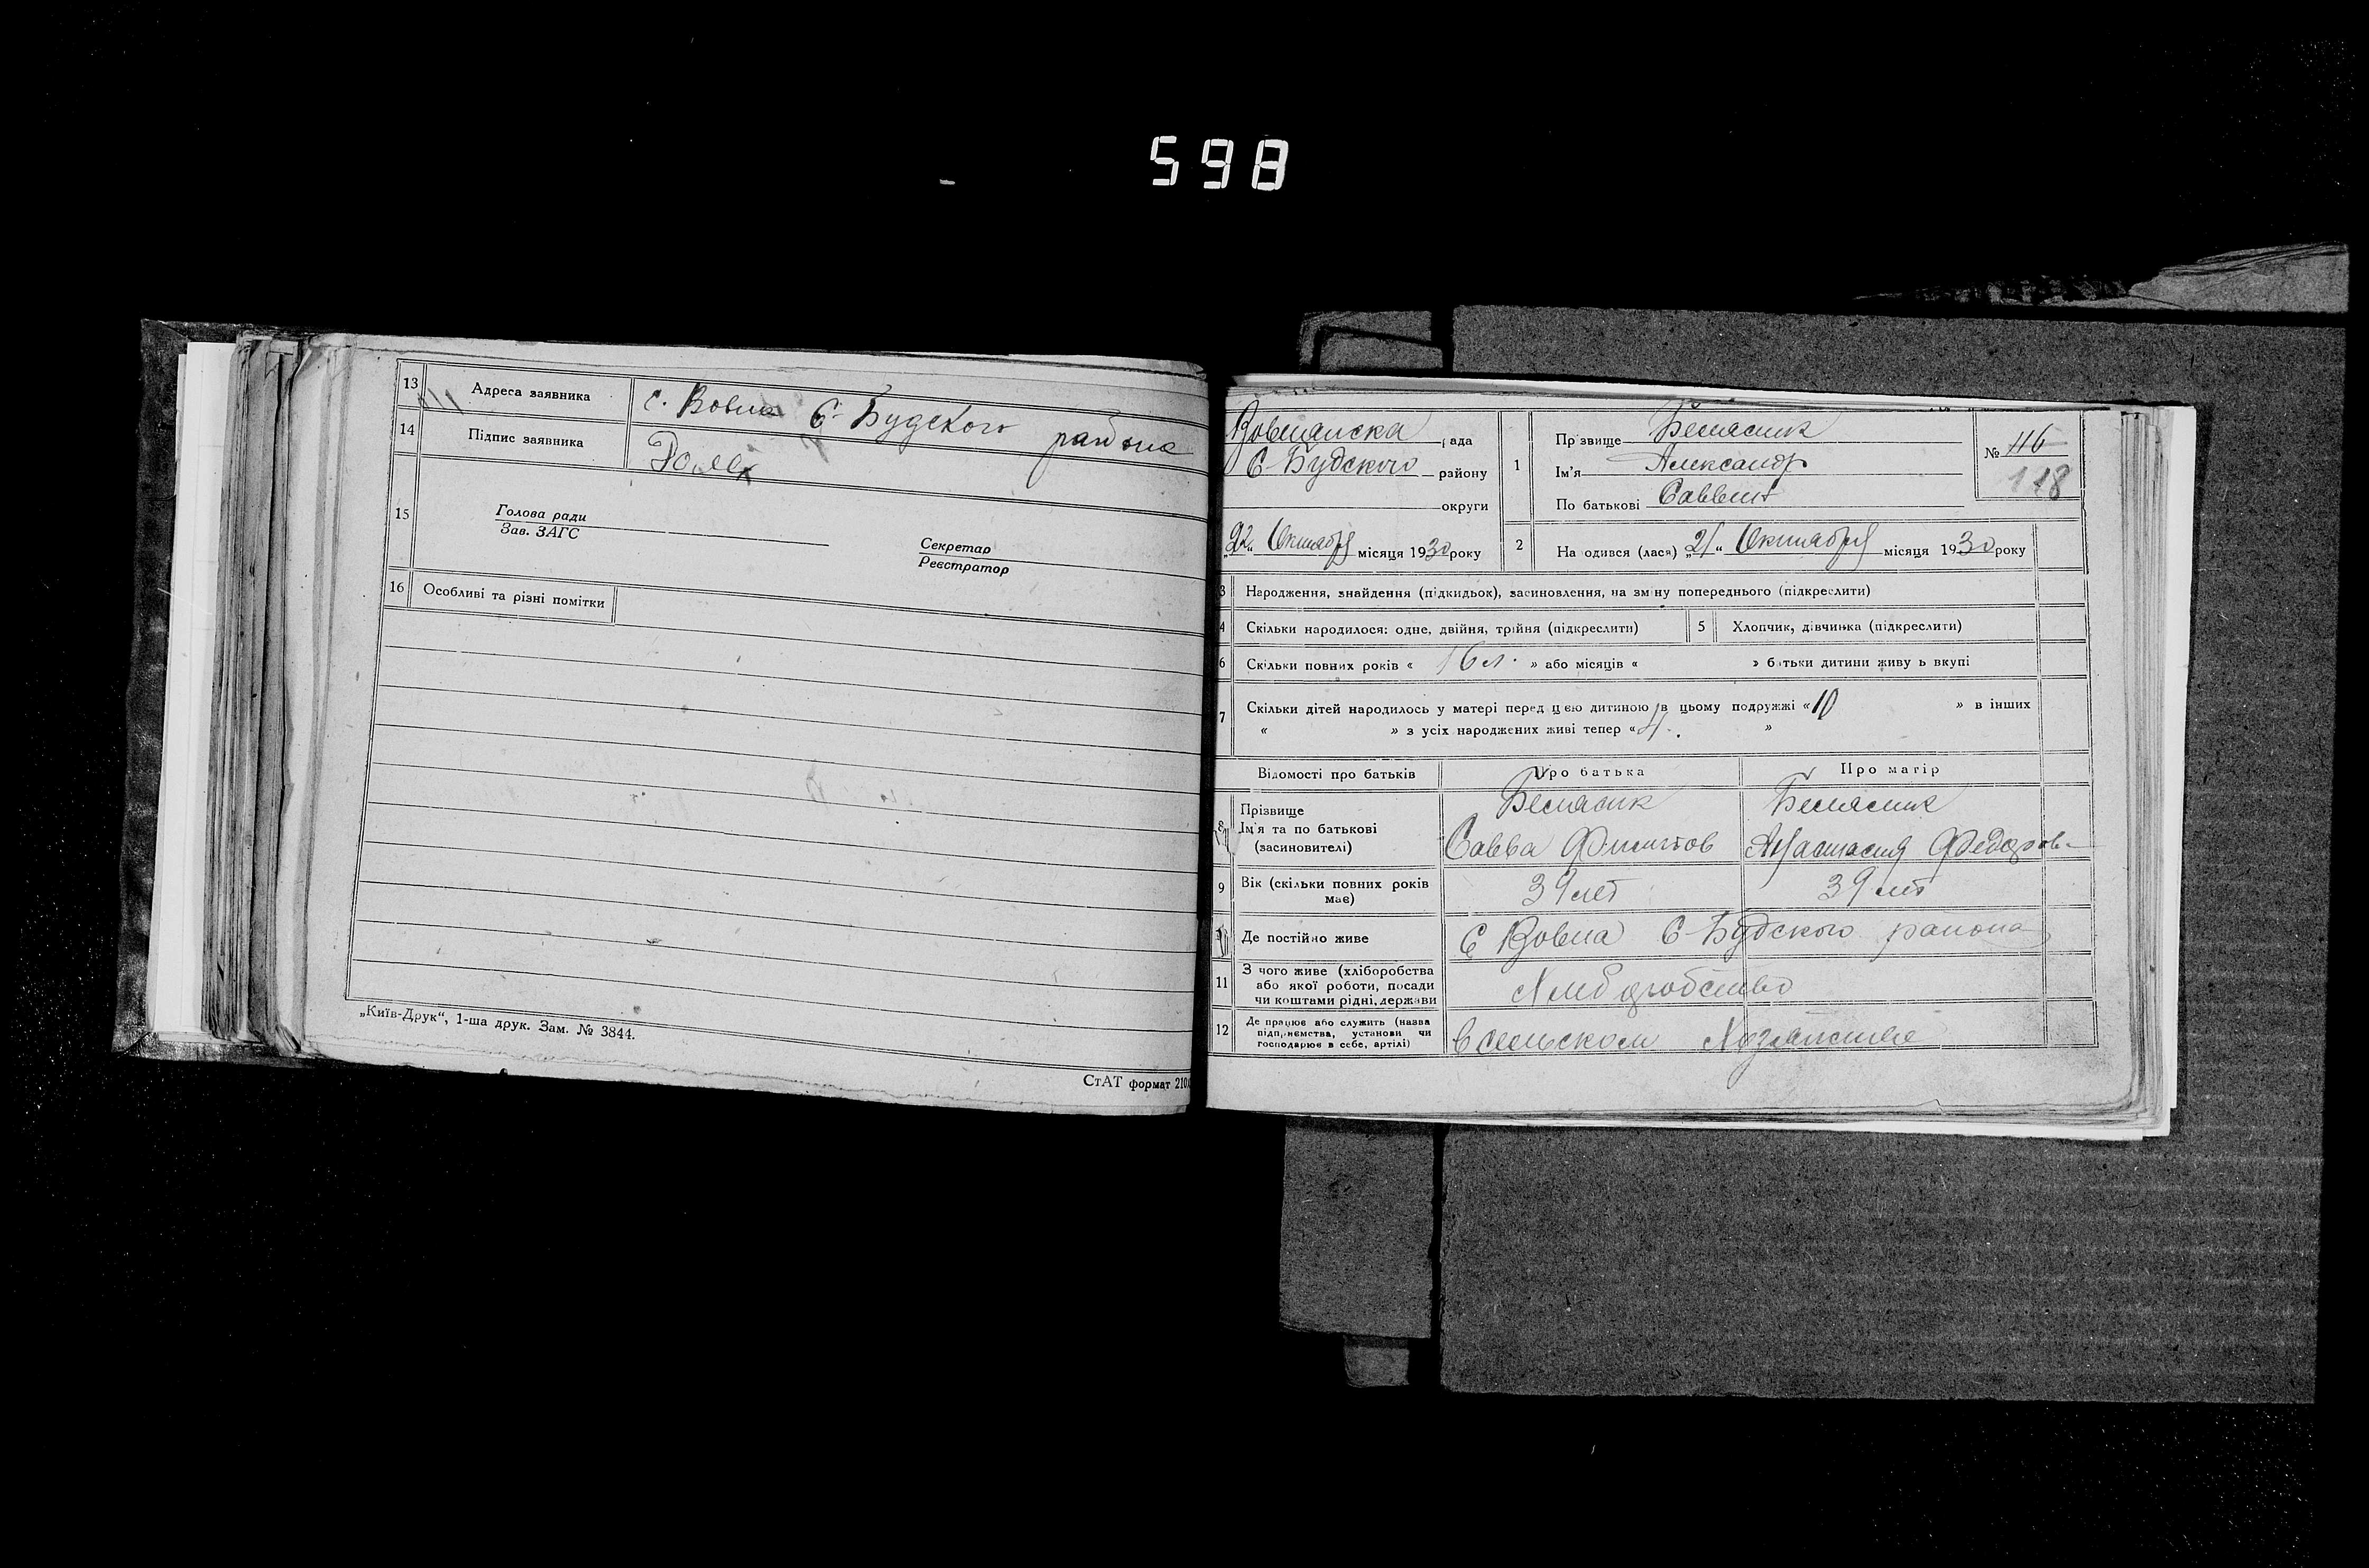 598
13 Адреса заявника с. Вовна С-Будского района
14 Підпис заявника
15 Голова ради
Зав. ЗАГС
Секретар
Реєстратор
16 Особливі та різні помітки
„Київ-Друк“, 1-ша друк. Зам. № 3844.
СтАТ формат 210
рада
С-Будского району
округи
„22“ Октября місяця 1930 року
1 Прізвище
Ім'я Александр
По батькові
№ 116
118
2 Народився (лася) „21“ Октября місяця 1930 року
3 Народження, знайдення (підкидьок), засиновлення, на зміну попереднього (підкреслити)
4 Скільки народилося: одне, двійня, трійня (підкреслити)
5 Хлопчик, дівчинка (підкреслити)
6 Скільки повних років « 16 л. » або місяців « » батьки дитини живуть вкупі
7 Скільки дітей народилось у матері перед цею дитиною в цьому подружжі « 10 » в інших
« » з усіх народжених живі тепер « 4. »
Відомості про батьків
Про батька
Про матір
8 Прізвище
Ім'я та по батькові
(засиновителі)
Савва
Анастасия Федоров-
9 Вік (скільки повних років
має)
39 лет
39 лет
Де постійно живе
С Вовна С-Будского района
11 З чого живе (хліборобства
або якої роботи, посади
чи коштами рідні, держави
Хлеборобство
12 Де працює або служить (назва
підприємства, установи чи
господарює в себе, артілі)
в сельском Хозяйстве